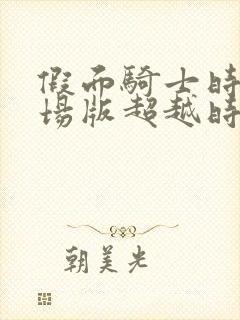 假面騎士時
場版超越時
朝美光